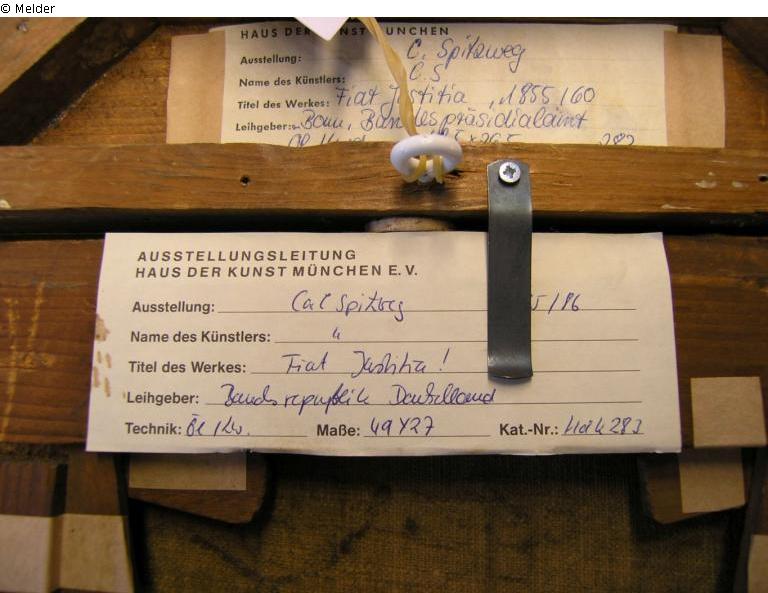 © Melder
HAUS DER KUNST MÜNCHEN
Ausstellung: C. Spitzweg
Name des Künstlers: C. S
Titel des Werkes: Fiat Justitia, 1855/60
Leihgeber: Bonn, Bundespräsidialamt
282
AUSSTELLUNGSLEITUNG
HAUS DER KUNST MÜNCHEN E.V.
Ausstellung: Carl Spitzweg 5/86
Name des Künstlers: "
Titel des Werkes: Fiat Justitia!
Leihgeber: Bundesrepublik Deutschland
Technik: Öl/Lw. Maße: 49x27 Kat.-Nr.: HdK 283